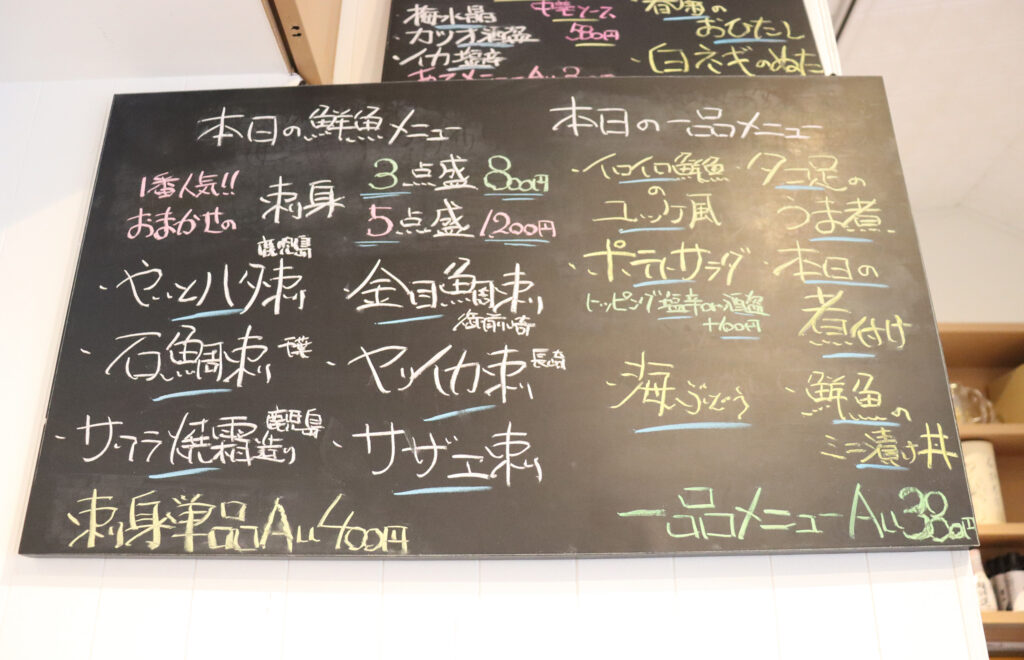 梅水晶
カツオ酒盗
イカ塩辛
中華ソース
580円
おひたし
白ネギのぬた
本日の鮮魚メニュー
1番人気!!
おまかせの
刺身
3点盛 800円
5点盛 1200円
・やいとハタ刺 鹿児島
・金目鯛刺
・石鯛刺 千葉
・ヤリイカ刺 長崎
・サワラ焼霜造り 鹿児島
・サザエ刺
刺身単品ALL400円
本日の一品メニュー
・イロイロ鮮魚
の
ユッケ風
・タコ足の
うま煮
・ポテトサラダ
トッピング塩辛or酒盗
+100円
・本日の
煮付け
・海ぶどう
・鮮魚の
ミニ漬け丼
一品メニューALL380円